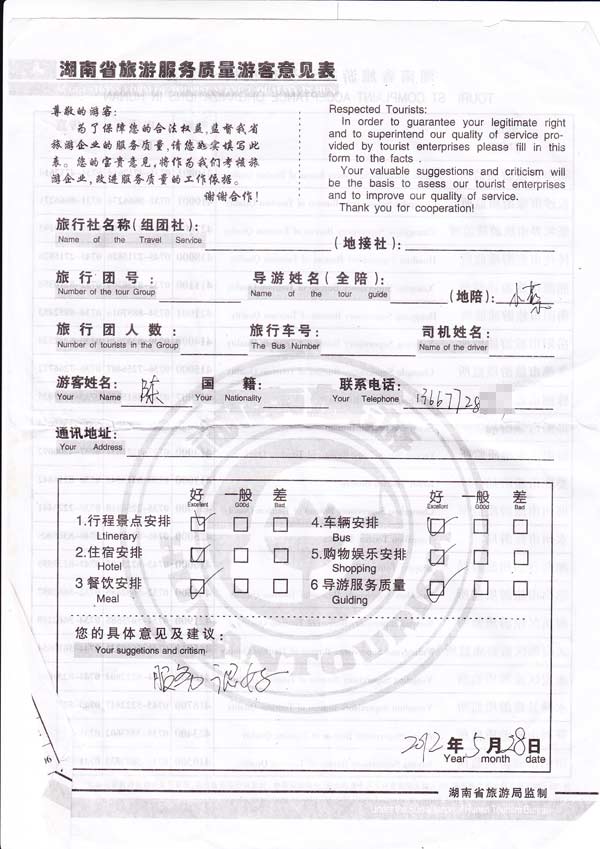 湖南省旅游服务质量游客意见表
尊敬的游客:
为了保障您的合法权益,监督我省
旅游企业的服务质量,请您如实填写此
表。您的宝贵意见,将作为我们考核旅
游企业,改进服务质量的工作依据。
谢谢合作!
Respected Tourists:
In order to guarantee your legitimate right
and to superintend our quality of service pro-
vided by tourist enterprises please fill in this
form to the facts .
Your valuable suggestions and criticism will
be the basis to asess our tourist enterprises
and to improve our quality of service.
Thank you for cooperation!
旅行社名称(组团社): (地接社):
Name of the Travel Service
旅行团号: 导游姓名(全陪): (地陪):
Number of the tour Group Name of the tour guide
旅行团人数: 旅行车号: 司机姓名:
Number of tourists in the Group The Bus Number Name of the driver
游客姓名: 陈 国籍: 联系电话: 13667728
Your Name Your Nationality Your Telephone
通讯地址:
Your Address
好 一般 差 好 一般 差
Excellent Good Bad Excellent Good Bad
1.行程景点安排 4.车辆安排
Ltinerary Bus
2.住宿安排 5.购物娱乐安排
Hotel Shopping
3 餐饮安排 6 导游服务质量
Meal Gulding
您的具体意见及建议:
Your suggetions and critism
服务很好
2012 年 5 月 28 日
Year month date
湖南省旅游局监制